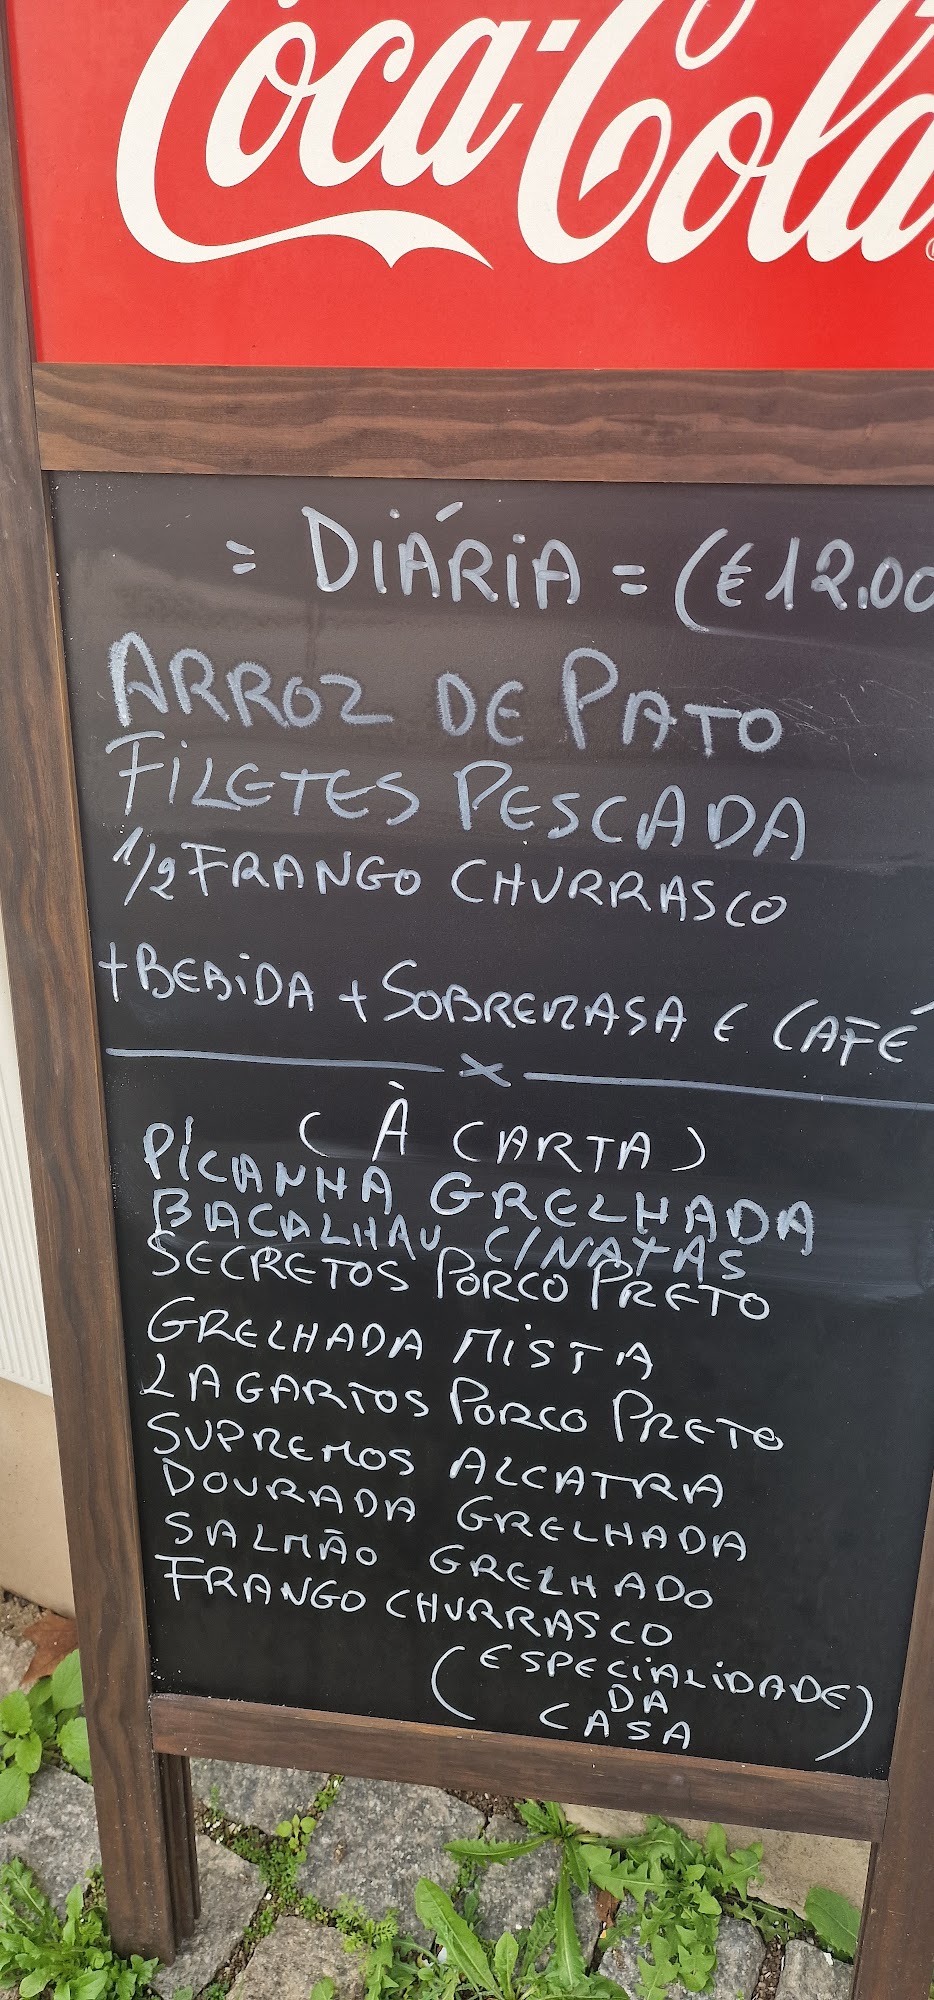 Coca-Cola
= DIÁRIA = (€12.00
ARROZ DE PATO
FILETES PESCADA
1/2 FRANGO CHURRASCO
+ BEBIDA + SOBREMASA E CAFÉ
(À CARTA)
PICANHA GRELHADA
BACALHAU C/NATAS
SECRETOS PORCO PRETO
GRELHADA MISTA
LAGARTOS PORCO PRETO
SUPREMOS ALCATRA
DOURADA GRELHADA
SALMÃO GRELHADO
FRANGO CHURRASCO
(ESPECIALIDADE)
DA
CASA